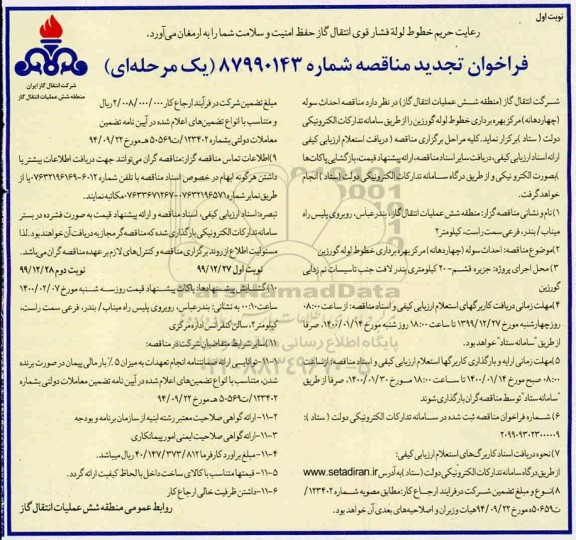 نوبت اول
رعایت حریم خطوط لولهٔ فشار قوی انتقال گاز حفظ امنیت و سلامت شما را به ارمغان می‌آورد.
شرکت انتقال گاز ایران
منطقه شش عملیات انتقال گاز
فراخوان تجدید مناقصه شماره ۸۷۹۹۰۱۴۳ (یک مرحله‌ای)
شرکت انتقال گاز (منطقه شش عملیات انتقال گاز) در نظر دارد مناقصه احداث سوله
(چهاردهانه) مرکز بهره برداری خطوط لوله گورزین را از طریق سامانه تدارکات الکترونیکی
دولت (ستاد) برگزار نماید. کلیه مراحل برگزاری مناقصه (دریافت استعلام ارزیابی کیفی
ارائه اسناد ارزیابی کیفی، دریافت سایر اسناد مناقصه، ارائه پیشنهاد قیمت، بازگشایی پاکت‌ها
) بصورت الکترونیکی و از طریق درگاه سامانه تدارکات الکترونیکی دولت (ستاد) انجام
خواهد گرفت.
۱) نام و نشانی مناقصه گزار: منطقه شش عملیات انتقال گاز، بندرعباس، روبروی پلیس راه
میناب / بندر، فرعی سمت راست، کیلومتر ۲
۲) موضوع مناقصه: احداث سوله (چهاردهانه) مرکز بهره برداری خطوط لوله گورزین
۳) محل اجرای پروژه: جزیره قشم - ۲۰ کیلومتری بندر لافت جنب تاسیسات نم زدایی
گورزین
۴) مهلت زمانی دریافت کاربرگهای استعلام ارزیابی کیفی و اسناد مناقصه: از ساعت ۰۸:۰۰
روز چهارشنبه مورخ ۱۳۹۹/۱۲/۲۷ تا ساعت ۱۸:۰۰ روز شنبه مورخ ۱۴۰۰/۰۱/۱۴، صرفا
از طریق "سامانه ستاد" خواهد بود.
۵) مهلت زمانی ارایه و بارگذاری کاربرگها استعلام ارزیابی کیفی و اسناد مناقصه: از ساعت
۰۸:۰۰ صبح مورخ ۱۴۰۰/۰۱/۱۴ تا ساعت ۱۸:۰۰ مورخ ۱۴۰۰/۰۱/۳۰، صرفا از طریق
"سامانه ستاد" توسط مناقصه گران بارگذاری شوند
۶) شماره فراخوان مناقصه ثبت شده در سامانه تدارکات الکترونیکی دولت (ستاد):
۲۰۹۹۰۹۳۰۲۳۰۰۰۰۰۹
۷) نحوه دریافت اسناد کاربرگ‌های استعلام ارزیابی کیفی:
از طریق درگاه سامانه تدارکات الکترونیکی دولت (ستاد) به آدرس www.setadiran.ir
۸) نوع و مبلغ تضمین شرکت در فرایند ارجاع کار: مطابق مصوبه شماره ۱۲۳۴۰۲/
ت۵۰۶۵۹ه مورخ ۹۴/۰۹/۲۲ هیات وزیران و اصلاحیه‌های بعدی آن خواهد بود.
مبلغ تضمین شرکت در فرآیند ارجاع کار ۲/۰۰۸/۰۰۰/۰۰۰ ریال
و متناسب با انواع تضمین‌های اعلام شده در آیین نامه تضمین
معاملات دولتی بشماره ۱۲۳۴۰۲/ت۵۰۵۶۹ه مورخ ۹۴/۰۹/۲۲
۹) اطلاعات تماس مناقصه گزار: مناقصه گران می‌توانند جهت دریافت اطلاعات بیشتر یا
داشتن هرگونه ابهام در خصوص اسناد مناقصه با تلفن شماره ۶۰۱۲-۰۷۶۳۲۱۹۶۱۶۹ یا از
طریق نمابر شماره ۰۷۶۳۲۱۹۶۵۷۱-۰۷۶۳۳۶۷۱۲۶۷ مکاتبه نمایند.
تبصره: اسناد ارزیابی کیفی، اسناد مناقصه و ارائه پیشنهاد قیمت به صورت فشرده در بستر
سامانه تدارکات الکترونیکی بارگذاری شده که مناقصه گر مجاز به دریافت آن خواهند بود. لذا
مسئولیت اطلاع از روند برگزاری مناقصه و کنترل‌های لازم بر عهده مناقصه گران می‌باشد.
نوبت اول ۹۹/۱۲/۲۷ نوبت دوم ۹۹/۱۲/۲۸
۱۰) گشایش پیشنهادها: پاکات پیشنهاد قیمت روز سه شنبه مورخ ۱۴۰۰/۰۲/۰۷
ساعت ۱۰:۰۰ به نشانی: بندرعباس، روبروی پلیس راه میناب / بندر، فرعی سمت راست،
کیلومتر ۲، سالن کنفرانس اداره مرکزی
۱۱) سایر شرایط متقاضیان شرکت در مناقصه:
۱-۱۱- توانایی ارائه ضمانتنامه انجام تعهدات به میزان ۵٪ بار مالی پیمان در صورت برنده
شدن، متناسب با انواع تضمین‌های اعلام شده در آیین نامه تضمین معاملات دولتی بشماره
۱۲۳۴۰۲/ت۵۰۶۵۹ه مورخ ۹۴/۰۹/۲۲
۲-۱۱- ارائه گواهی صلاحیت معتبر رشته ابنیه از سازمان برنامه و بودجه
۳-۱۱- ارائه گواهی صلاحیت ایمنی امور پیمانکاری
۴-۱۱- مبلغ برآورد کارفرما ۴۰/۱۴۷/۳۷۳/۸۱۲ ریال میباشد.
۵-۱۱- قیمتها متناسب با کالای ساخت داخل با لحاظ کیفیت ارائه گردد.
۶-۱۱- داشتن ظرفیت خالی ارجاع کار
روابط عمومی منطقه شش عملیات انتقال گاز